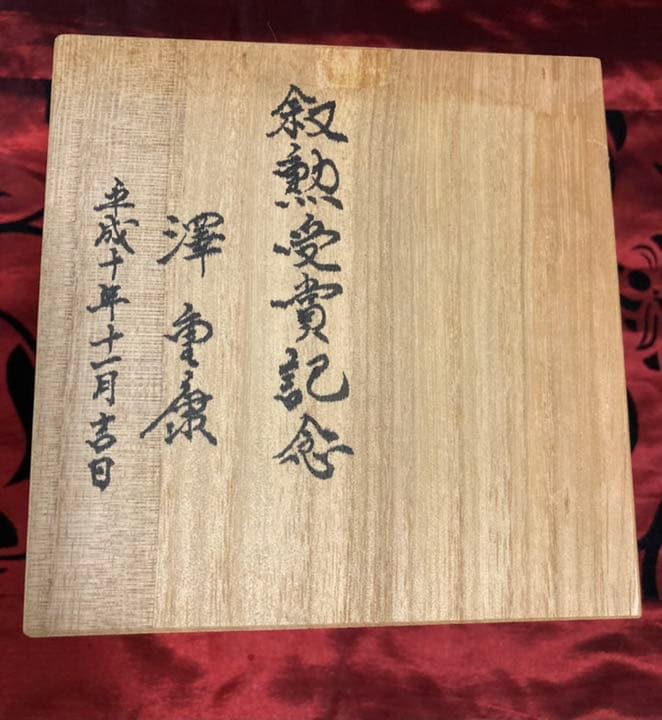 叙勲受賞記念
澤重康
平成十年十一月吉日